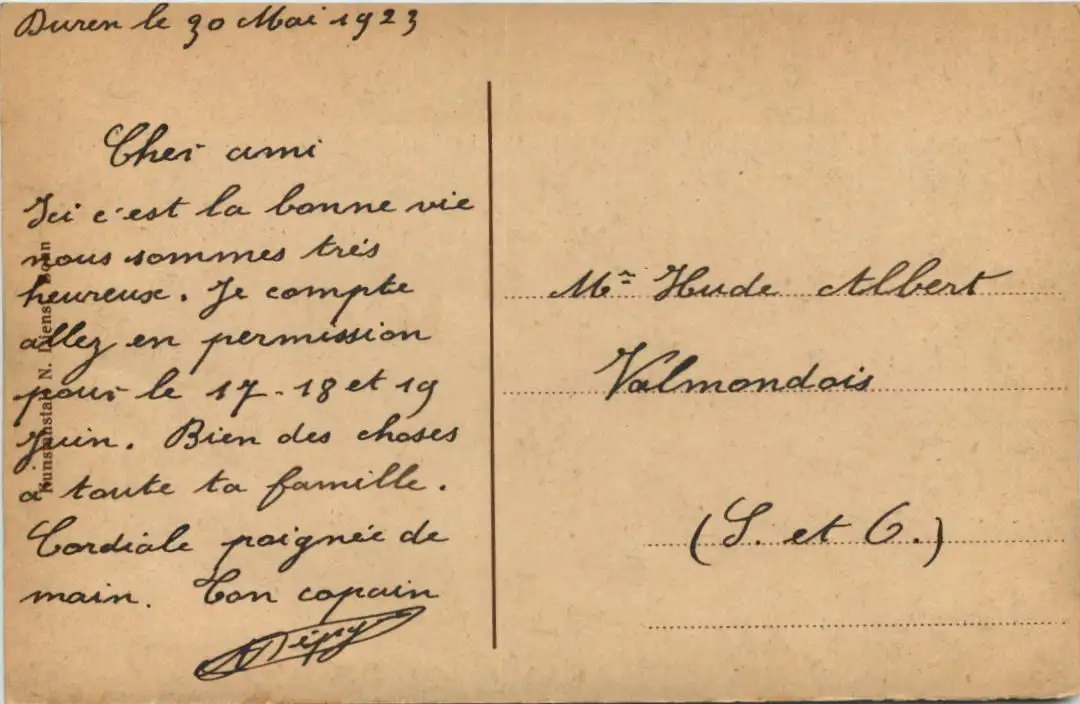 Duren le 30 Mai 1923
Cher ami
Ici c'est la bonne vie
nous sommes très
heureux. Je compte
allez en permission
pour le 17-18 et 19
Juin. Bien des choses
a toute ta famille.
Cordiale poignée de
main. Ton copain
Mr Hude Albert
Valmondois
(S. et O.)
Kunstanstalt N. Bonn